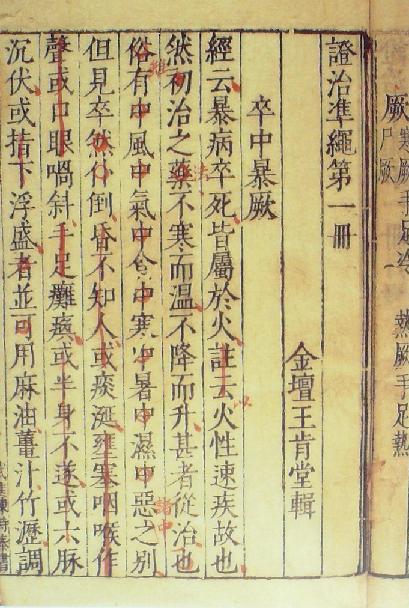 厥 寒厥手足冷 熱厥手足熱
尸厥
證治準繩第一冊
金壇王肯堂輯
卒中暴厥
經云暴病卒死皆屬於火註云火性速疾故也
以
然初治之藥不寒而溫不降而升甚者從治也
法
俗有中風中氣中食中寒中暑中濕中惡之別
雖
諸中
但見卒然仆倒昏不知人或痰涎壅塞咽喉作
聲或口眼喎斜手足癱瘓或半身不遂或六脈
沉伏或指下浮盛者並可用麻油薑汁竹瀝調